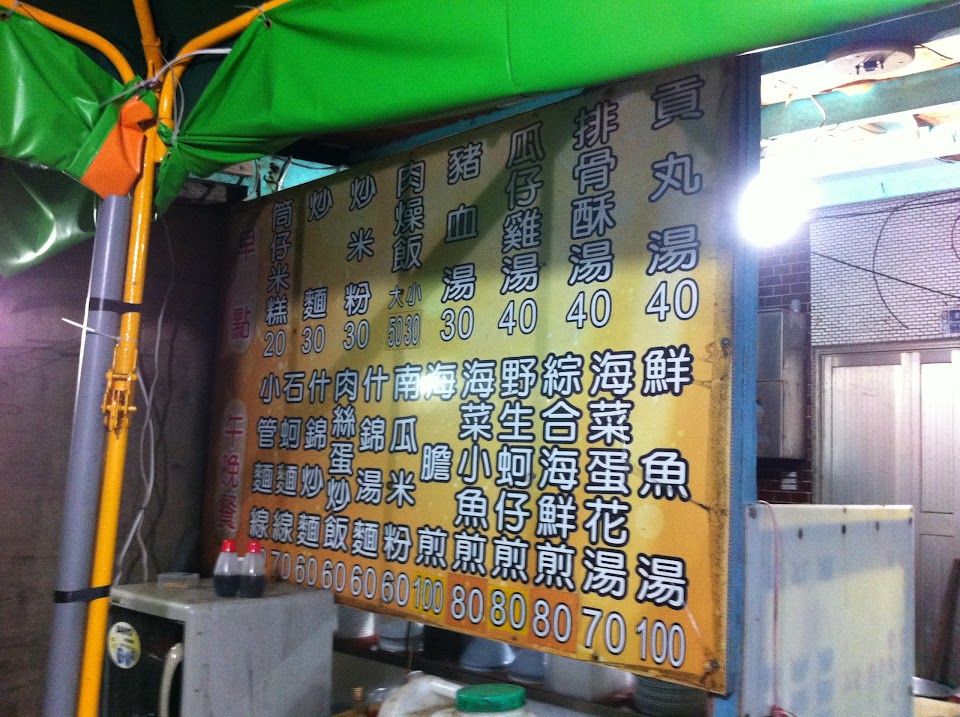 貢丸湯 40
排骨酥湯 40
瓜仔雞湯 40
豬血湯 30
肉燥飯 大50 小30
炒米粉 30
炒麵 30
筒仔米糕 20
早點
鮮魚湯 100
海菜蛋花湯 70
綜合海鮮煎 80
野生蚵仔煎 80
海菜小魚煎 80
海膽煎 100
南瓜米粉 60
什錦湯麵 60
肉絲蛋炒飯 60
什錦炒麵 60
石蚵麵線 70
小管麵線
午晚餐
SANYO